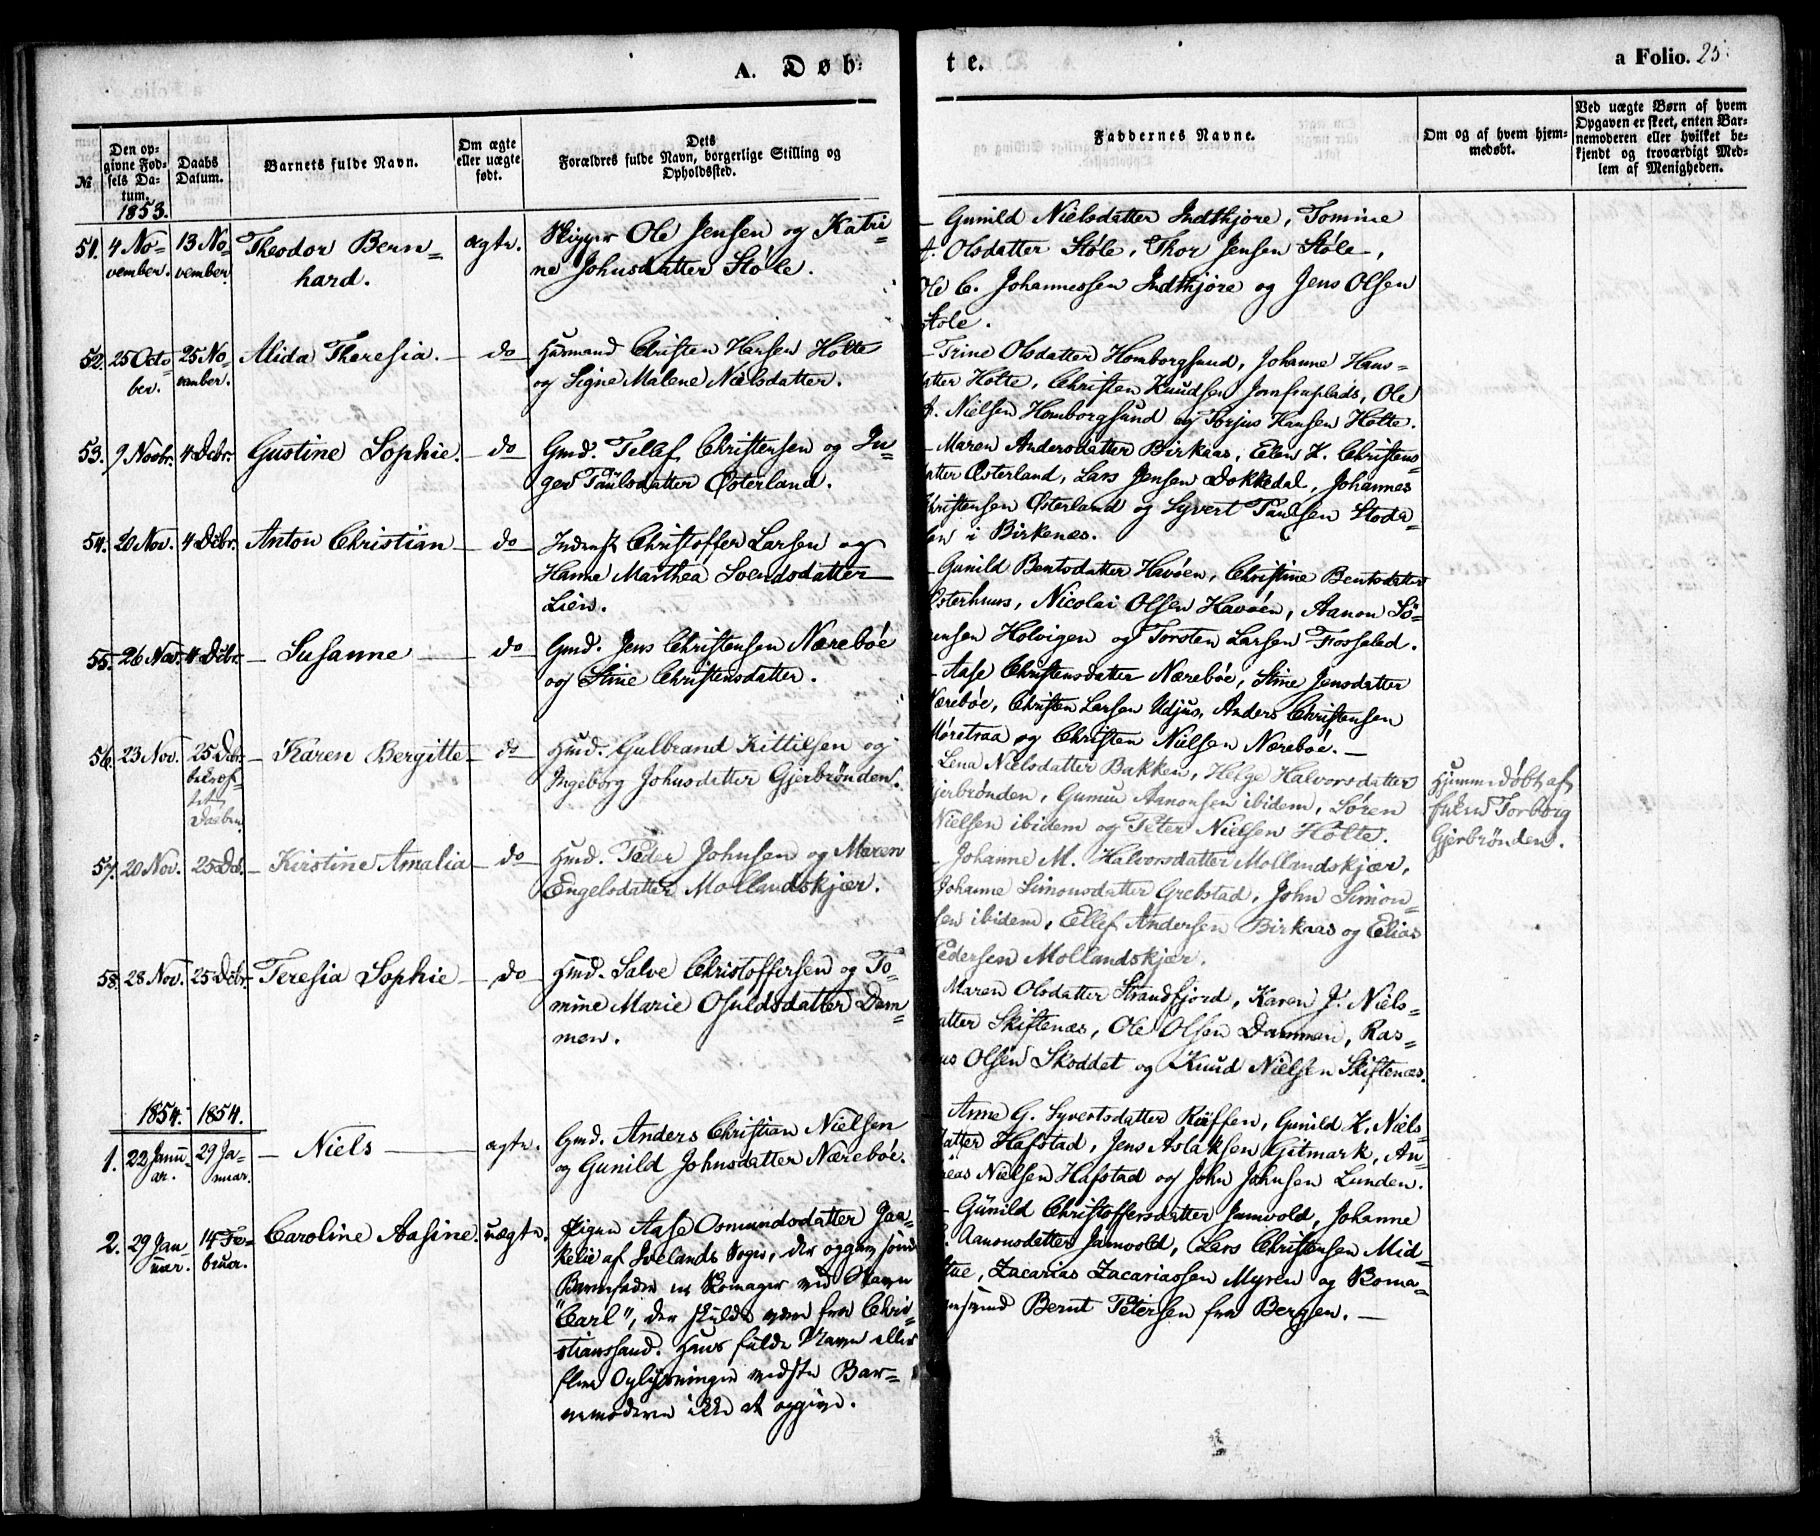 A. Døb-
te.
a Folio. 25.
№
Den opgivne Fødsels Datum.
Daabs Datum.
Barnets fulde Navn.
Om ægte eller uægte født.
Dets Forældres fulde Navn, borgerlige Stilling og Opholdssted.
Faddernes Navne.
Om og af hvem hjemmedøbt.
Ved uægte Børn af hvem Opgaven er skeet, enten Barnemoderen eller hvilket bekjendt og troværdigt Medlem af Menigheden.
1853.
51. 4 No= 13 No= Theodor Bern= ægte. Skipper Ole Jensen og Katri=
vember. vember. hard. ne Johnsdatter Støle.
— Gunild Nielsdatter Indthjøre, Tomine
A. Olsdatter Støle, Thor Jensen Støle,
Ole C. Johannessen Indthjøre og Jens Olsen
Støle.
52. 25 Octo= 25 No= Alida Theresia. — do — Huusmand Christen Hansen Holte
ber. vember. og Signe Malene Nielsdatter.
— Trine Olsdatter Homborgsund, Johanne Hans=
datter Holte, Christen Knudsen Jomfruplads, Ole
A. Nielsen Homborgsund og Torjus Hansen Holte.
53. 9 Novbr. 4 Dcbr. Gustine Sophie. — do — Gmd. Tellef Christensen og In=
ger Taulsdatter Østerland.
— Maren Andersdatter Birkaas, Elen K. Christens=
datter Østerland, Lars Jensen Dokkedal, Johannes
Christensen Østerland og Syvert Taulsen Stoda=
len i Birkenæs.
54. 20 Nov. 4 Dcbr. Anton Christian — do — Inderst Christoffer Larsen og
Hanne Marthea Svendsdatter
Lien.
— Gunild Bentsdatter Havøen, Christine Bentsdatter
Østerhuus, Nicolai Olsen Havøen, Aanon Sö=
rensen Holvigen og Torsten Larsen Fosseled.
55. 26 Nov. 4 Dcbr. — Susanne — do — Gmd. Jens Christensen Nærebøe
og Stine Christensdatter.
— Aase Christensdatter Nærebøe, Stine Jensdatter
Nærebøe, Christen Larsen Udjus, Anders Christensen
Møretraa og Christen Nielsen Nærebøe. —
56. 23 Nov. 25 Dcbr. — Karen Bergitte — do — Huusmd. Gulbrand Kittilsen og
bekræf= Ingeborg Johnsdatter Gjerbrønden.
tet
Daaben
Lena Nielsdatter Bakken, Helge Halvorsdatter
Gjerbrønden, Gumun Aanonsen ibidem, Søren
Nielsen ibidem og Peter Nielsen Holte.
Hjemmedøbt af
Enken Torborg
Gjerbrønden.
57. 20 Nov. 25 Dcb. — Kirstine Amalia — do — Huusmd. Peder Johnsen og Maren
Engelsdatter Mollandskjær.
— Johanne M. Halvorsdatter Mollandskjær,
Johanne Simonsdatter Grebstad, John Simon=
sen ibidem, Ellef Andersen Birkaas og Elias
Pedersen Mollandskjær.
58. 28 Nov. 25 Dcbr. Teresia Sophie — do — Huusmd. Salve Christoffersen og To=
mine Marie Osuldsdatter Dam=
men.
Maren Olsdatter Strandfjord, Karen J. Niels=
datter Skiftenæs, Ole Olsen Dammen, Ras=
mus Olsen Skoddet og Knud Nielsen Skiftenæs.
1854. 1854.
1. 22 Janu= 29 Ja= — Niels — ægte. Gmd. Anders Christian Nielsen
ar. nuar. og Gunild Johnsdatter Nærebøe.
Anne G. Syvertsdatter Røffen, Gunild K. Niels=
datter Hafstad, Jens Aslaksen Gitmark, An=
dreas Nielsen Hafstad og John Johnsen Lunden.
2. 29 Jan= 14 Fe= Caroline Aasine. uægte. Pigen Aase Osmundsdatter Jaa=
uar. bruar. kelie af Ivelands Sogn, der opgav som
Barnefader en Skomager ved Navn
"Carl", der skulde være fra Chri=
stianssand. Hans fulde Navn eller
flere Oplysninger vidste Bar=
nemoderen ikke at opgive.
— Gunild Christoffersdatter Jamvold, Johanne
Aanonsdatter Jamvold, Lars Christensen Mid=
stue, Zacarias Zacariassen Myren og Skoma=
gersvend Bernt Petersen fra Bergen. —